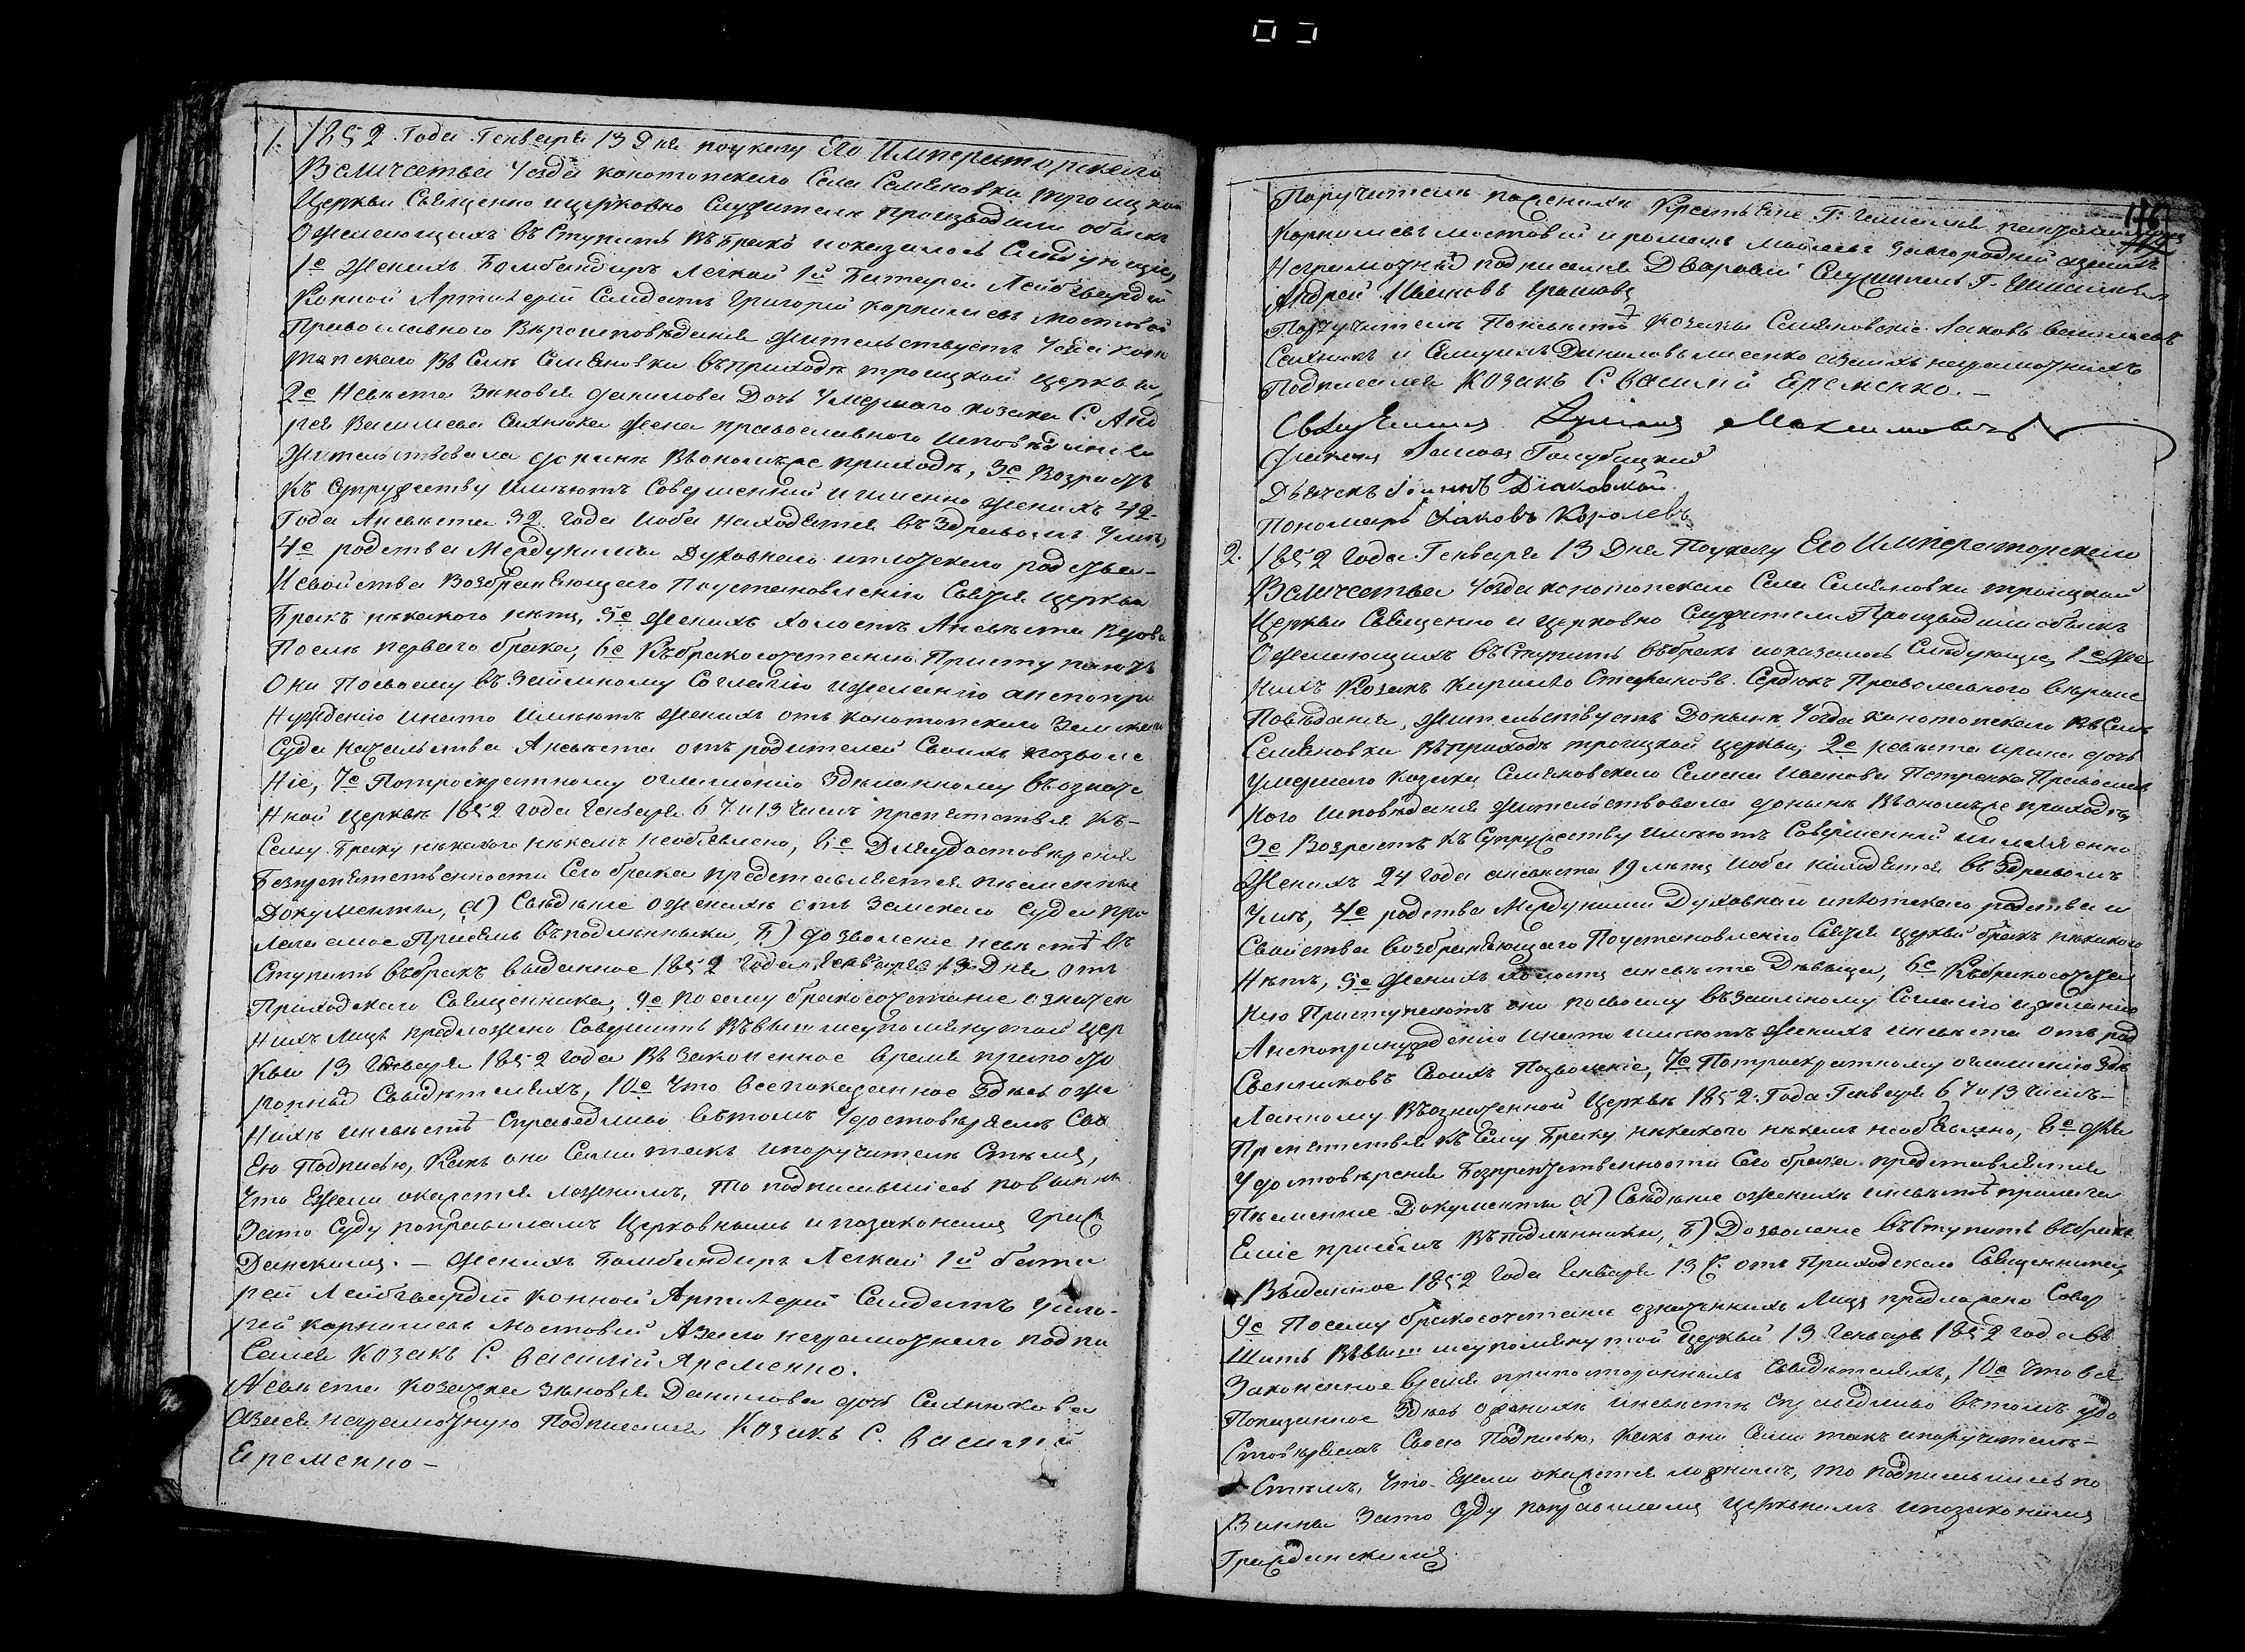 1. 1852 Года Генваря 13 Дня поуказу Его Императорскаго
Величества Уезда конотопскаго Села Семяновки троицкой
Церкви Священно ицерковно Служители производили обыскъ
Ожелающихъ въступить въбракъ ипоказалось Следующее,
1е женихъ Бомбандиръ легкой 1й Батареи Лейбгвардей
Конной Артилерій Салдатъ Григорій корнилиевъ мостовой
Православного Вѣроисповѣданія жительствуетъ Уезда коно
топскаго въ Селѣ Семяновки въприходѣ троицкой церкви,
2е Невѣста Зѣновія данилова Дочь Умершаго козака С. Анд
рея Василиева Сахнюка жена православного исповѣданія
жительствовала донинѣ въономъже приходѣ, 3е Возрастъ
Къ Супружеству имѣютъ Совершенній иименно женихъ 42
Года Aневѣста 32 года иоба находятся въздравомъ Умѣ,
4е родства Международними Духовнаго иплотскаго родства-
Исвойства Возбраняющаго Поустановленію Святія церкви
Бракъ нѣкакого нѣтъ, 5е женихъ холостъ Aневѣста Вдова
Послѣ перваго брака, 6е Къбракосочетанію Приступаютъ
Они Посвоему въ Заимному Согласію ижеланію анепопри
Нужденію инато имѣютъ женихъ отъ конотопскаго Земскаго
Суда начальства Aневѣста отъ родителей Своихъ позволе
Ніе, 7е Потроекратному оглашенію здѣланному въозначе
Нной церквѣ 1852 года Генваря 6 7 и 13 Чиселъ препятствія къ-
Сему браку нѣкакого нѣкемъ необявлено, 8е Дляудостовѣренія
Безпрепятственности Сего брака представляется писменніе
Документы, а) Свѣденіе оженихѣ отъ Земскаго Суда при
лагаемое Присемъ въподлинники, Б) дозволеніе невѣстѣ въ
Ступить въбракъ выданное 1852 года Генваря 13 Дня отъ
Приходскаго Священника, 9е посему бракосочетаніе означен
Нихъ Лицъ предложено Совершить въвышеупомянутой цер
Кви 13 Генваря 1852 года въ законенное время припосто
роннѣй Свидѣтеляхъ, 10е что всепоказанное здѣсь оже
Нихѣ иневѣстѣ Справедливо вѣтомъ Удостовѣряемъ Сво
Ею Подписью, Какъ они Сами такъ ипоручители Стѣмъ,
Что Ежели окажется ложнимъ, то подписавшиесь повинни
Зато Суду поправиламъ Церковнымъ ипозаконамъ Граж
Данскимъ. - женихъ Бамбандиръ Легкай 1й бата
реи Лейбгвардій конной Артилерій Салдатъ Григо-
рей корнилиевъ мостовій Aзаего неграмотнаго подпи
Сался Козакъ С. Василій Яременко.
Невѣста козачка зѣновія Данилова дочь Сахнюкова
Aзанея неграмотную Подписался Козакъ С. Василій
Еременко -
176
Поручители поженихѣ
корнилиевъ мостовій и романъ загородній азанихъ
Неграмотній подписался Дваровій Служитель Г.
Андрей Ивановъ
Поручители Поневѣстѣ Козаки Семяновскіе Яковъ Василиевъ
Сахнюкъ и Самуилъ Даниловъ лисенко азанихъ неграмотнихъ
Подписался Козакъ С. Василій Еременко. -
Священникъ Максимовичъ
Голубицкій
Дьячекъ Діаковской
Пономарь Яковъ Королевъ
2. 1852 Года Генваря 13 Дня Поуказу Его Императорскаго
Величества Уезда конотопскаго Села Семяновки троицкой
Церкви Священно и церковно Служители Производили обыскъ
Ожелающихъ въступить въбракъ ипоказалось Следующее, 1е же
нихъ Козакъ Кирилло Стефановъ Сердюкъ Православного вѣроис
Повѣданія, жительствуетъ Донынѣ Уезда конотопскаго въСелѣ
Семяновки въприходѣ троицкой церкви, 2е невѣста ирина дочь
Умершаго козака Семяновскаго Семена Иванова Петренка Православ
ного исповѣданія жительствовала донынѣ въономъже приходѣ,
3е Возрастъ къСупружеству имѣютъ Совершенній иименно
Женихъ 24 года aневѣста 19 лѣтъ иоба находятся въ здравомъ
Умѣ, 4е родства Международними Духовнаго иплотскаго родства и
Свойства возбраняющаго Поустановленію Святія церкви бракъ нѣкакого
Нѣтъ, 5е женихъ холостъ aневѣста Дѣвица, 6е Къбракосочета
Нію Приступаютъ они посвоему въЗаимному Согласію ижеланію
Aнепопринужденію инато имѣютъ женихъ иневѣста отъ род
Свенниковъ Своихъ Позволеніе, 7е Потроекратному оглашенію здѣ
Ланному въозначенной Церквѣ 1852 Года Генваря 6 7 и 13 Чиселъ-
Препятствія къ Сему браку нѣкакого нѣкемъ необявлено, 8е для
Удостовѣренія Безпрепятственности Сего брака представляется
Писменніе Документы а) Свѣденіе оженихѣ иневѣстѣ прилага
Еміе присемъ въподлинники, Б) Дозволеніе въСтупить въбракъ
Выданное 1852 года Генваря 13 Д. отъ Приходскаго Священника,
9е Посему бракосочетаніе означеннихъ Лицъ предложено Совер
Шить въвышеупомянутой церкви 13 Генваря 1852 года въ
Законенное время припостороннихъ Свидѣтеляхъ, 10е Что все
Показанное здѣсь оженихѣ иневѣстѣ Справедливо вѣтомъ удо
Стовѣряемъ Своею Подписью, какъ они Сами такъ ипоручители-
Стѣмъ, Что Ежели окажется ложнимъ, то подписавшиесь по
Винни Зато Суду поправиламъ церковнимъ ипозаконамъ
Гражданскимъ.